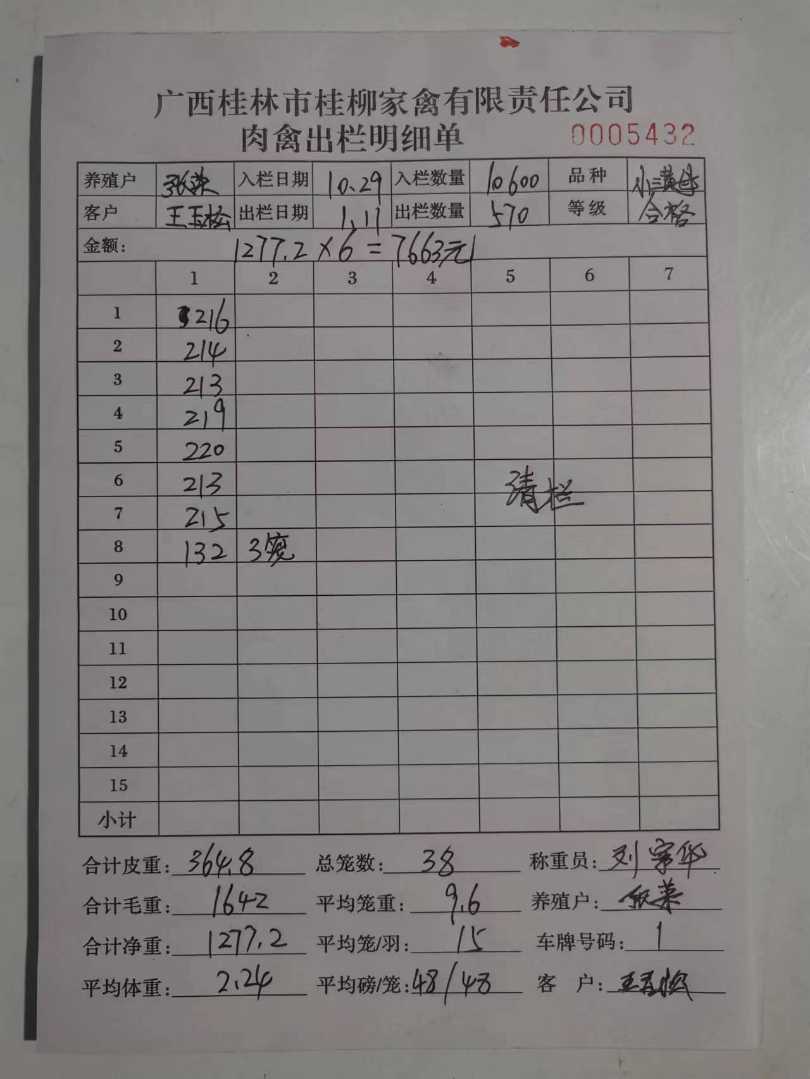 广西桂林市桂柳家禽有限责任公司
肉禽出栏明细单 0005432
养殖户 张荣 入栏日期 10.29 入栏数量 10600 品种 小三黄母
客户 王玉松 出栏日期 1.11 出栏数量 570 等级 合格
金额: 1277.2×6=7663元
1 2 3 4 5 6 7
1 216
2 214
3 213
4 219
5 220
6 213 清栏
7 215
8 132 3笼
9
10
11
12
13
14
15
小计
合计皮重: 364.8 总笼数: 38 称重员: 刘家华
合计毛重: 1642 平均笼重: 9.6 养殖户:
合计净重: 1277.2 平均笼/羽: 15 车牌号码: 1
平均体重: 2.24 平均磅/笼: 48/48 客 户: 王玉松